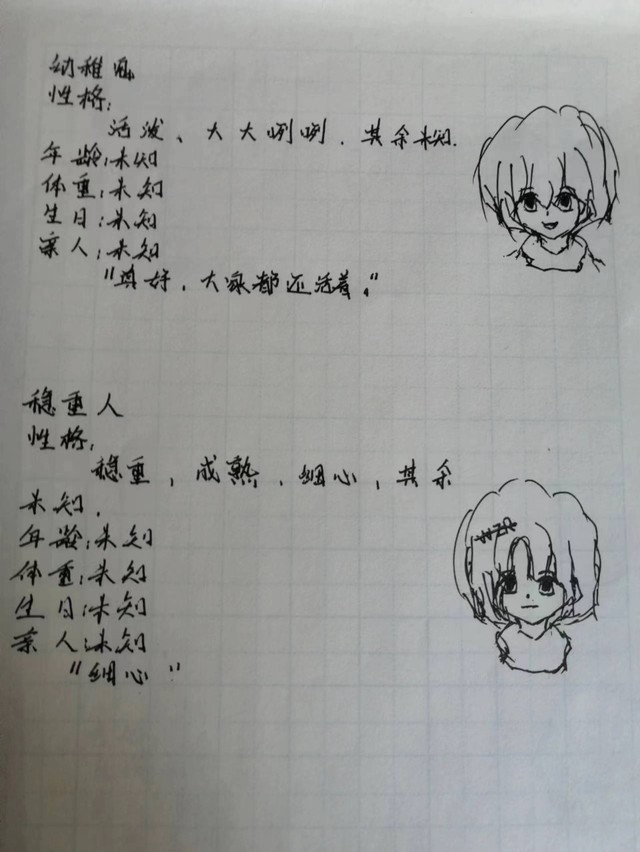 幼稚
性格:
活泼、大大咧咧.其余未知.
年龄:未知
体重:未知
生日:未知
亲人:未知
"真好,大家都还活着。"
稳重人
性格:
稳重,成熟,细心,其余
未知.
年龄:未知
体重:未知
生日:未知
亲人:未知
"细心"